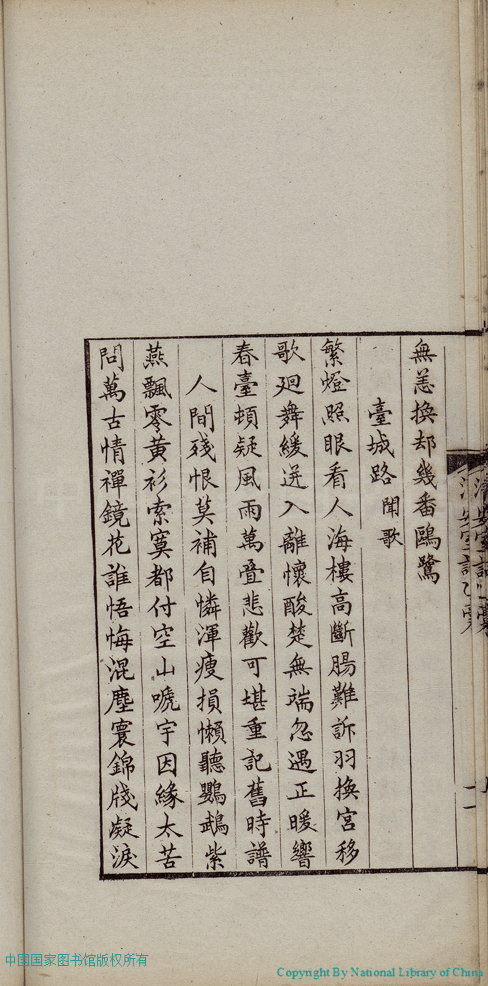 無恙換却幾番鷗鷺
臺城路 聞歌
繁燈照眼看人海樓高斷腸難訴羽換宮移
歌廻舞緩迸入離懷酸楚無端忽遇正暖響
春臺頓疑風雨萬疊悲歡可堪重記舊時譜
人間殘恨莫補自憐渾瘦損懶聽鸚鵡紫
燕飄零黃衫索寞都付空山嗁宇因緣太苦
問萬古情禪鏡花誰悟悔混塵寰錦牋凝淚
中国国家图书馆版权所有
Copyright By National Library of China